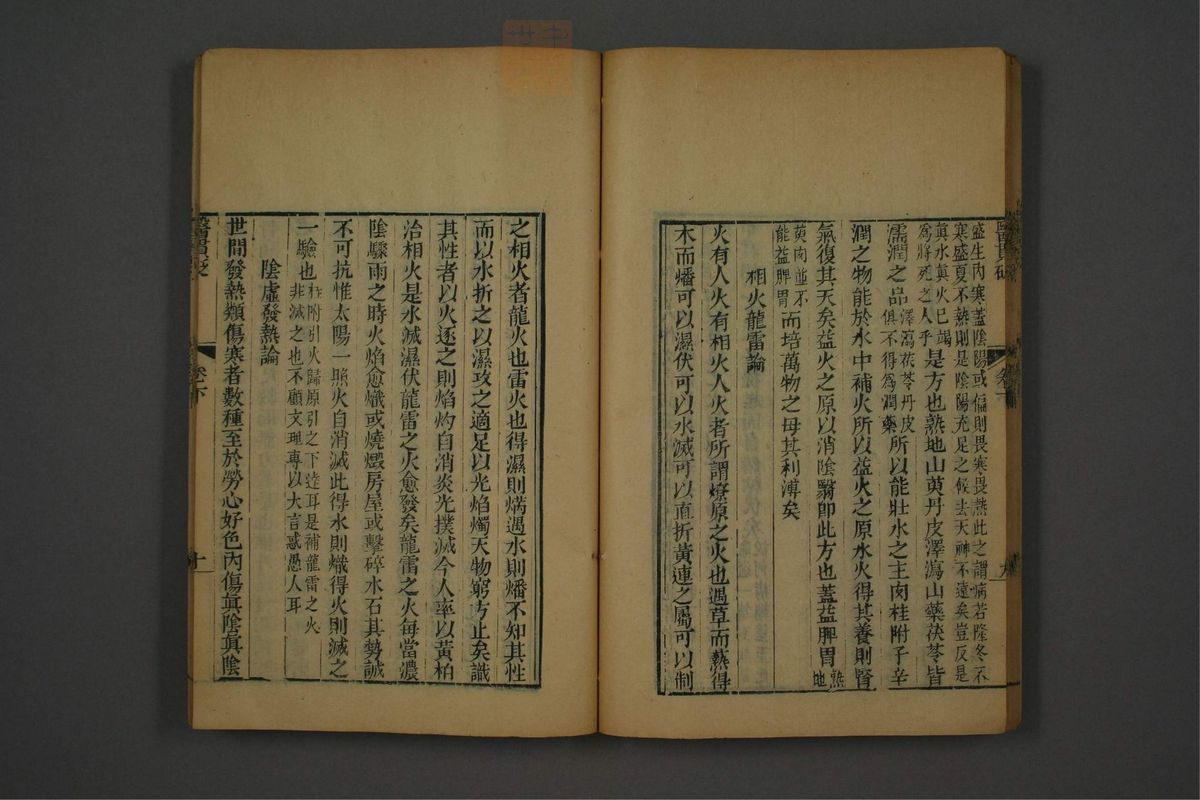 盛生內寒蓋陰陽或偏則畏寒畏熱此之謂病若隆冬不
寒盛夏不熱則是陰陽充足之候去天神不遠矣豈反是
真水真火已竭
為將死之人乎是方也熟地山萸丹皮澤瀉山藥茯苓皆
濡潤之品澤瀉茯苓丹皮
俱不得為潤藥所以能壯水之主肉桂附子辛
潤之物能於水中補火所以益火之原水火得其養則腎
氣復其天矣益火之原以消陰翳卽此方也蓋益脾胃熟
地
萸肉並不
能益脾胃而培萬物之母其利溥矣
相火龍雷論
火有人火有相火人火者所謂燎原之火也遇草而爇得
木而燔可以濕伏可以水滅可以直折黃連之屬可以制
之相火者龍火也雷火也得濕則焫遇水則燔不知其性
而以水折之以濕攻之適足以光焰燭天物窮方止矣識
其性者以火逐之則焰灼自消炎光撲滅今人率以黃柏
治相火是水滅濕伏龍雷之火愈發矣龍雷之火每當濃
陰驟雨之時火焰愈熾或燒燬房屋或擊碎水石其勢誠
不可抗惟太陽一照火自消滅此得水則熾得火則滅之
一驗也桂附引火歸原引之下達耳是補龍雷之火
非滅之也不顧文理專以大言惑愚人耳
陰虛發熱論
世間發熱類傷寒者數種至於勞心好色內傷眞陰眞陰
醫貫砭
卷下
十